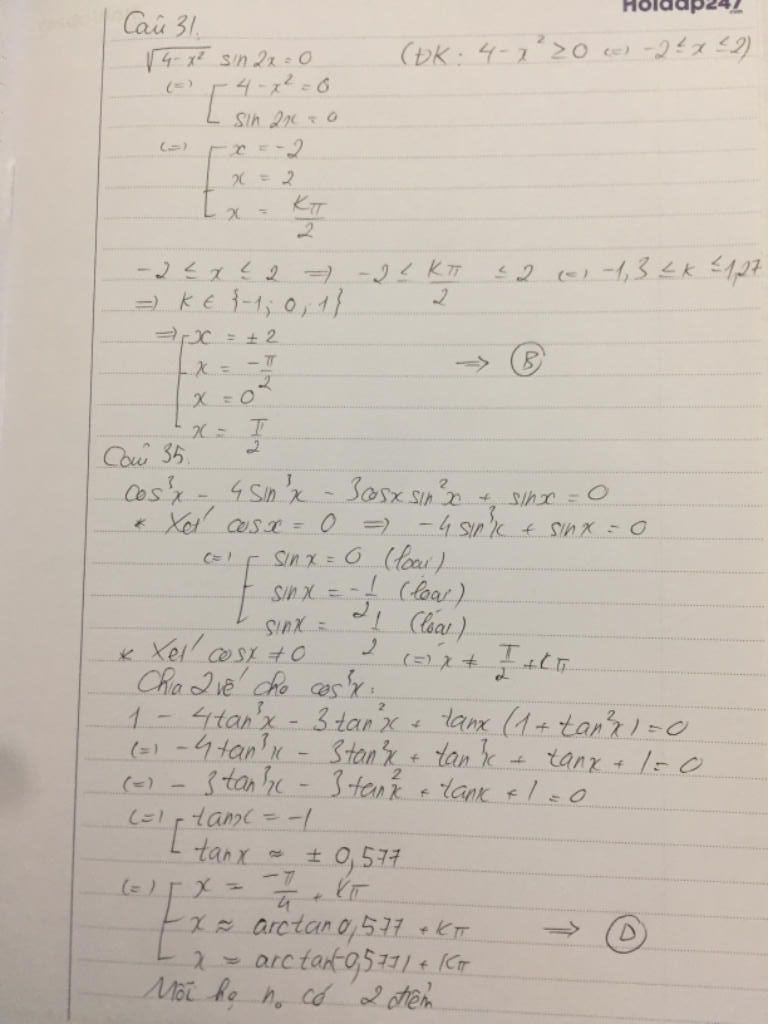 Hoidap247
Câu 31.
√(4-x²) sin 2x = 0 (ĐK: 4 - x² ≥ 0 (=) -2 ≤ x ≤ 2)
(=) [ 4 - x² = 0
sin 2x = 0
(=) [ x = -2
x = 2
x = Kπ/2
-2 ≤ x ≤ 2 => -2 ≤ Kπ/2 ≤ 2 (=) -1,3 ≤ K ≤ 1,27
=> K ∈ {-1; 0; 1}
=> [ x = ± 2
x = -π/2 => (B)
x = 0
x = π/2
Câu 35.
cos³x - 4sin³x - 3cosx sin²x + sinx = 0
* Xét cosx = 0 => -4sin³x + sinx = 0
(=) [ sinx = 0 (loại)
sinx = -1/2 (loại)
sinx = 1/2 (loại)
* Xét cosx ≠ 0 (=) x ≠ π/2 + Kπ
Chia 2 vế cho cos³x:
1 - 4tan³x - 3tan²x + tanx (1 + tan²x) = 0
(=) -4tan³x - 3tan²x + tan³x + tanx + 1 = 0
(=) -3tan³x - 3tan²x + tanx + 1 = 0
(=) [ tanx = -1
tanx ≈ ± 0,577
(=) [ x = -π/4 + Kπ
x ≈ arctan 0,577 + Kπ => (D)
x = arctan(-0,577) + Kπ
Mỗi họ n₀ có 2 điểm